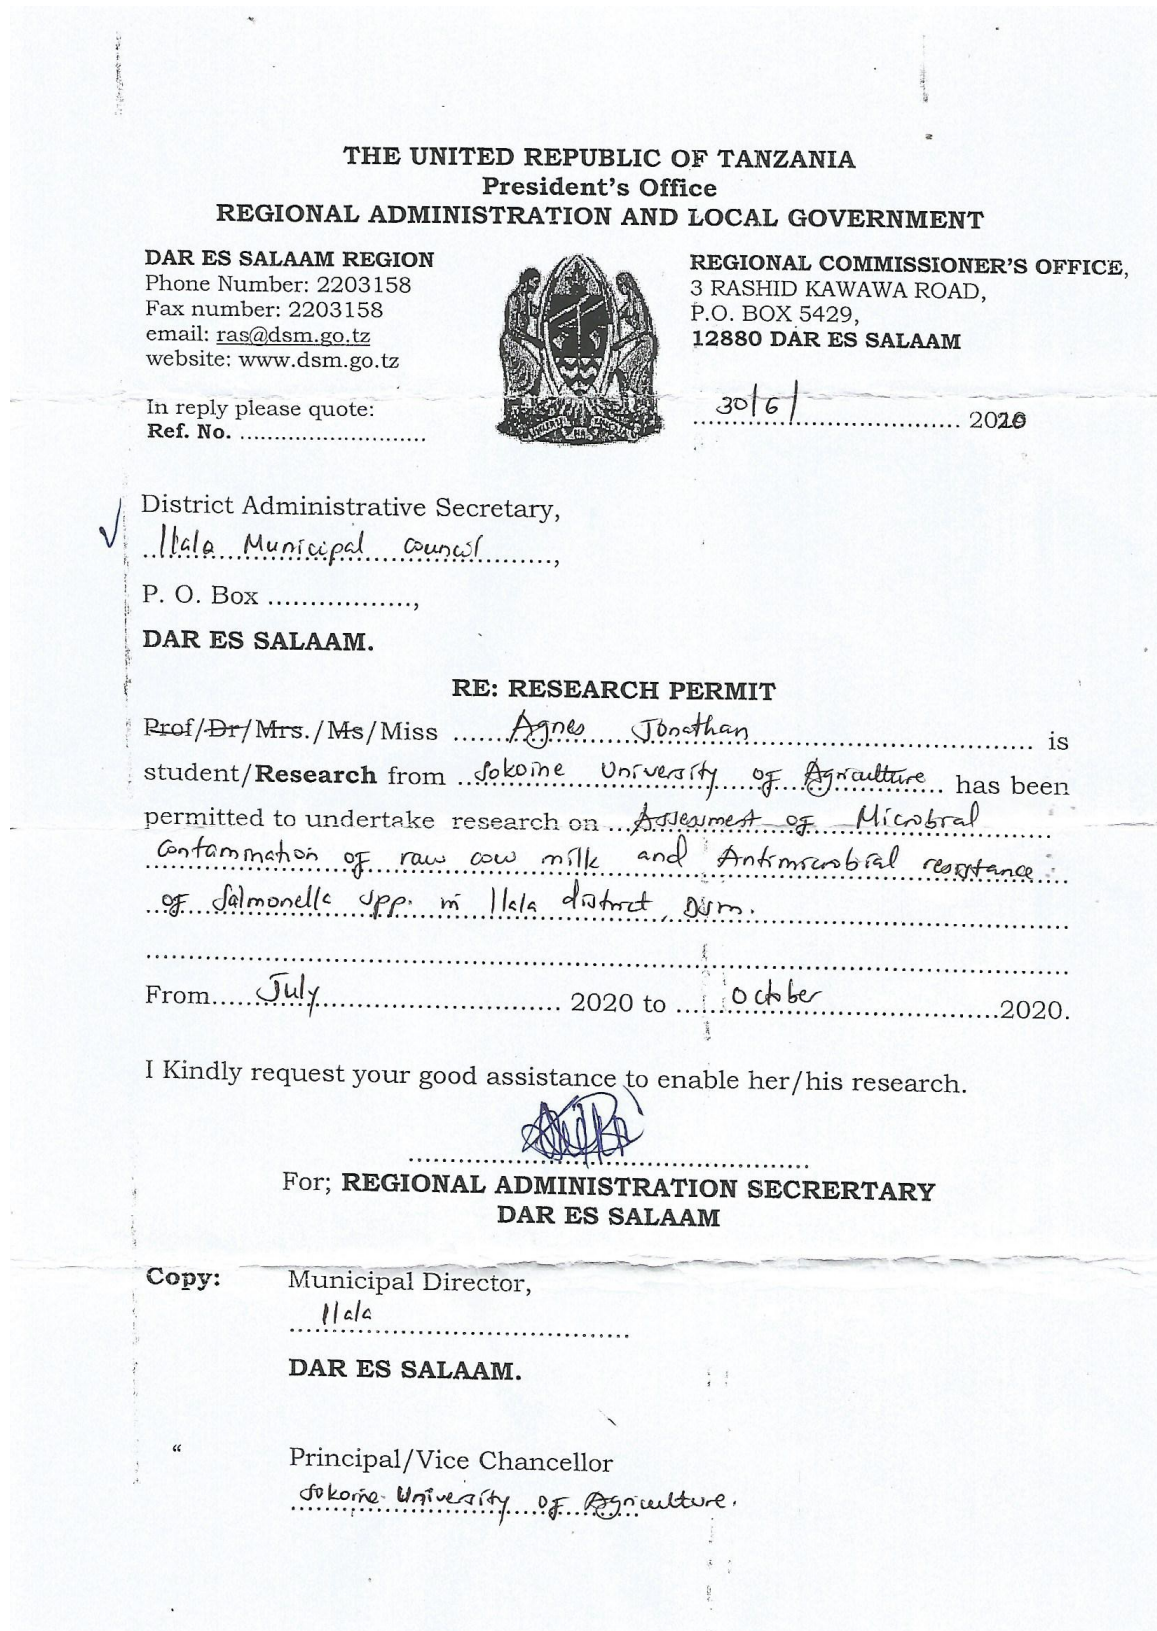 THE UNITED REPUBLIC OF TANZANIA
President's Office
REGIONAL ADMINISTRATION AND LOCAL GOVERNMENT
DAR ES SALAAM REGION
Phone Number: 2203158
Fax number: 2203158
email: ras@dsm.go.tz
website: www.dsm.go.tz
In reply please quote:
Ref. No. ..............................
REGIONAL COMMISSIONER'S OFFICE,
3 RASHID KAWAWA ROAD,
P.O. BOX 5429,
12880 DAR ES SALAAM
30/6/ 2020
District Administrative Secretary,
Ilala Municipal Council,
P. O. Box .................,
DAR ES SALAAM.
RE: RESEARCH PERMIT
Prof/Dr/Mrs./Ms/Miss Agnes Jonathan is
student/Research from Sokoine University of Agriculture has been
permitted to undertake research on Assesment of Microbial
Contammation of raw cow milk and Antimicrobial resistance
of Salmonella spp. in Ilala district, Dsm.
From July 2020 to October 2020.
I Kindly request your good assistance to enable her/his research.
For; REGIONAL ADMINISTRATION SECRERTARY
DAR ES SALAAM
Copy: Municipal Director,
Ilala
DAR ES SALAAM.
“ Principal/Vice Chancellor
Sokoine University of Agriculture.